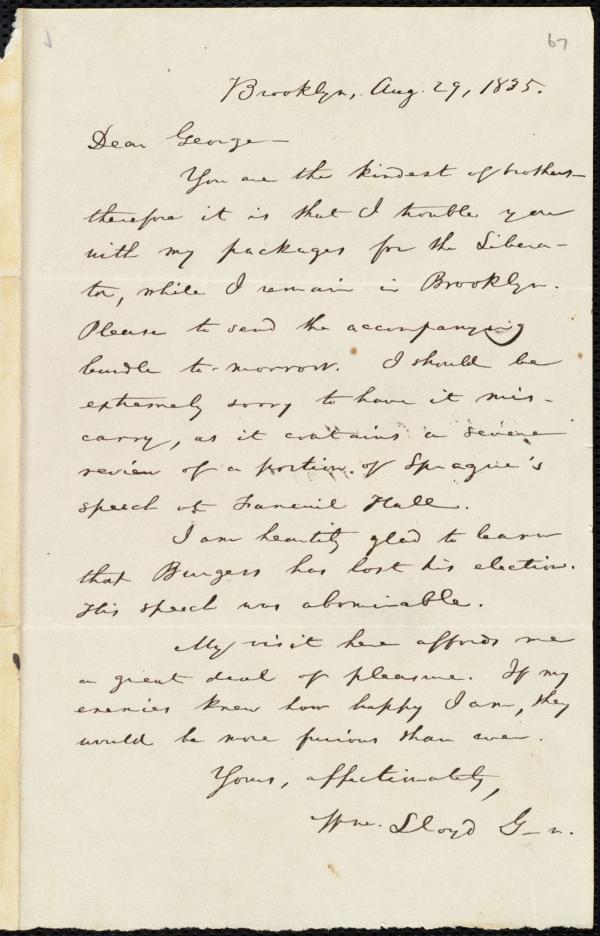 67
Brooklyn, Aug. 29, 1835.
Dear George—
You are the kindest of brothers—
therefore it is that I trouble you
with my packages for the Libera-
tor, while I remain in Brooklyn.
Please to send the accompanying
bundle to-morrow. I should be
extremely sorry to have it mis-
carry, as it contains a severe
review of a portion of Sprague's
speech at Faneuil Hall.
I am heartily glad to learn
that Burgess has lost his election.
His speech was abominable.
My visit here affords me
a great deal of pleasure. If my
enemies knew how happy I am, they
would be more furious than ever.
Yours, affectionately,
Wm. Lloyd G—n.